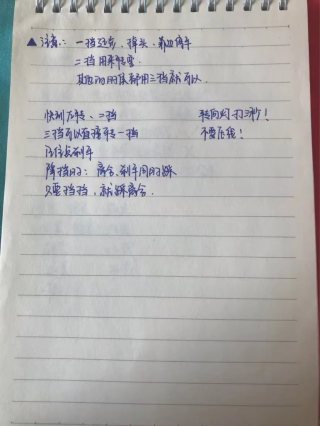 ▲注意: 一挡起步、掉头、靠边停车
二挡用来转弯
其他的时候都用三挡就可以.
快到左转、二挡 转向灯打3秒!
三挡可以直接转一挡 不要压线!
记住点刹车
降挡时: 离合、刹车同时踩
只要挂挡, 就踩离合.